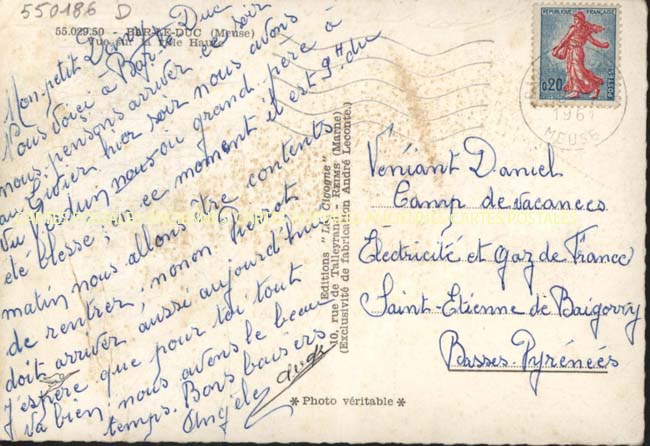 550186 D
55.029.50 - BAR-LE-DUC (Meuse)
Vue sur la Ville Haute
Mon petit Daniel
Nous voiçi à Bar le Duc
nous pensons arriver ce soir
au Gidier hier soir nous avons
vu Verdun nous où grand père à
été blessé; en ce moment il est 9H. du
matin nous allons être contents
de rentrer, nonon Pierrot
doit arriver aussi aujourd'hui
J'espère que pour toi tout
va bien, nous avons le beau
temps. Bons baisers
Angèle
Editions "La Cigogne"
10, rue de Talleyrand - REIMS (Marne)
(Exclusivité de fabrication André Leconte.)
* Photo véritable *
REPUBLIQUE FRANÇAISE
0,20
POSTES
1961
MEUSE
Véniant Daniel
Camp de vacances
Électricité et Gaz de France
Saint-Etienne de Baigorry
Basses-Pyrénées
CARTES POSTALES